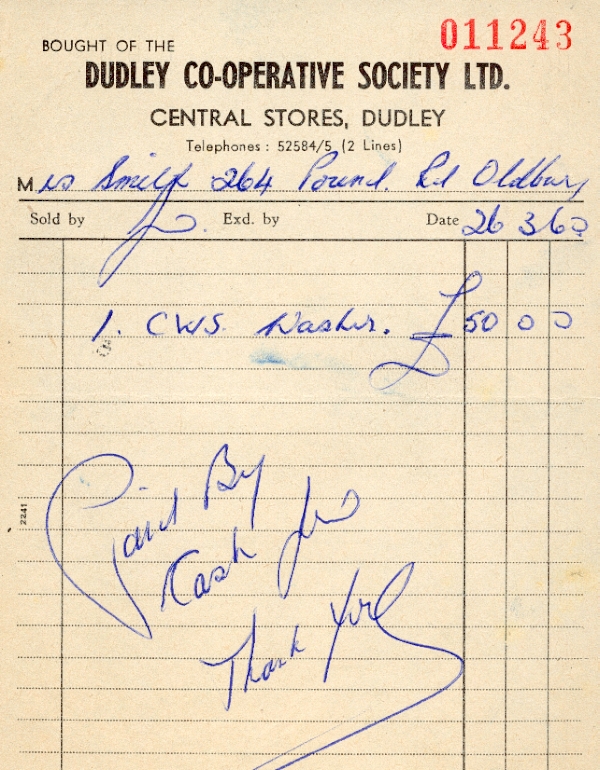 011243
BOUGHT OF THE
DUDLEY CO-OPERATIVE SOCIETY LTD.
CENTRAL STORES, DUDLEY
Telephones : 52584/5 (2 Lines)
Mrs Smith 264 Pound. Rd Oldbury
Sold by Exd. by Date 26 3 60
1. CWS. Washer. £50 0 0
Paid By
Cash
Thank You
2241